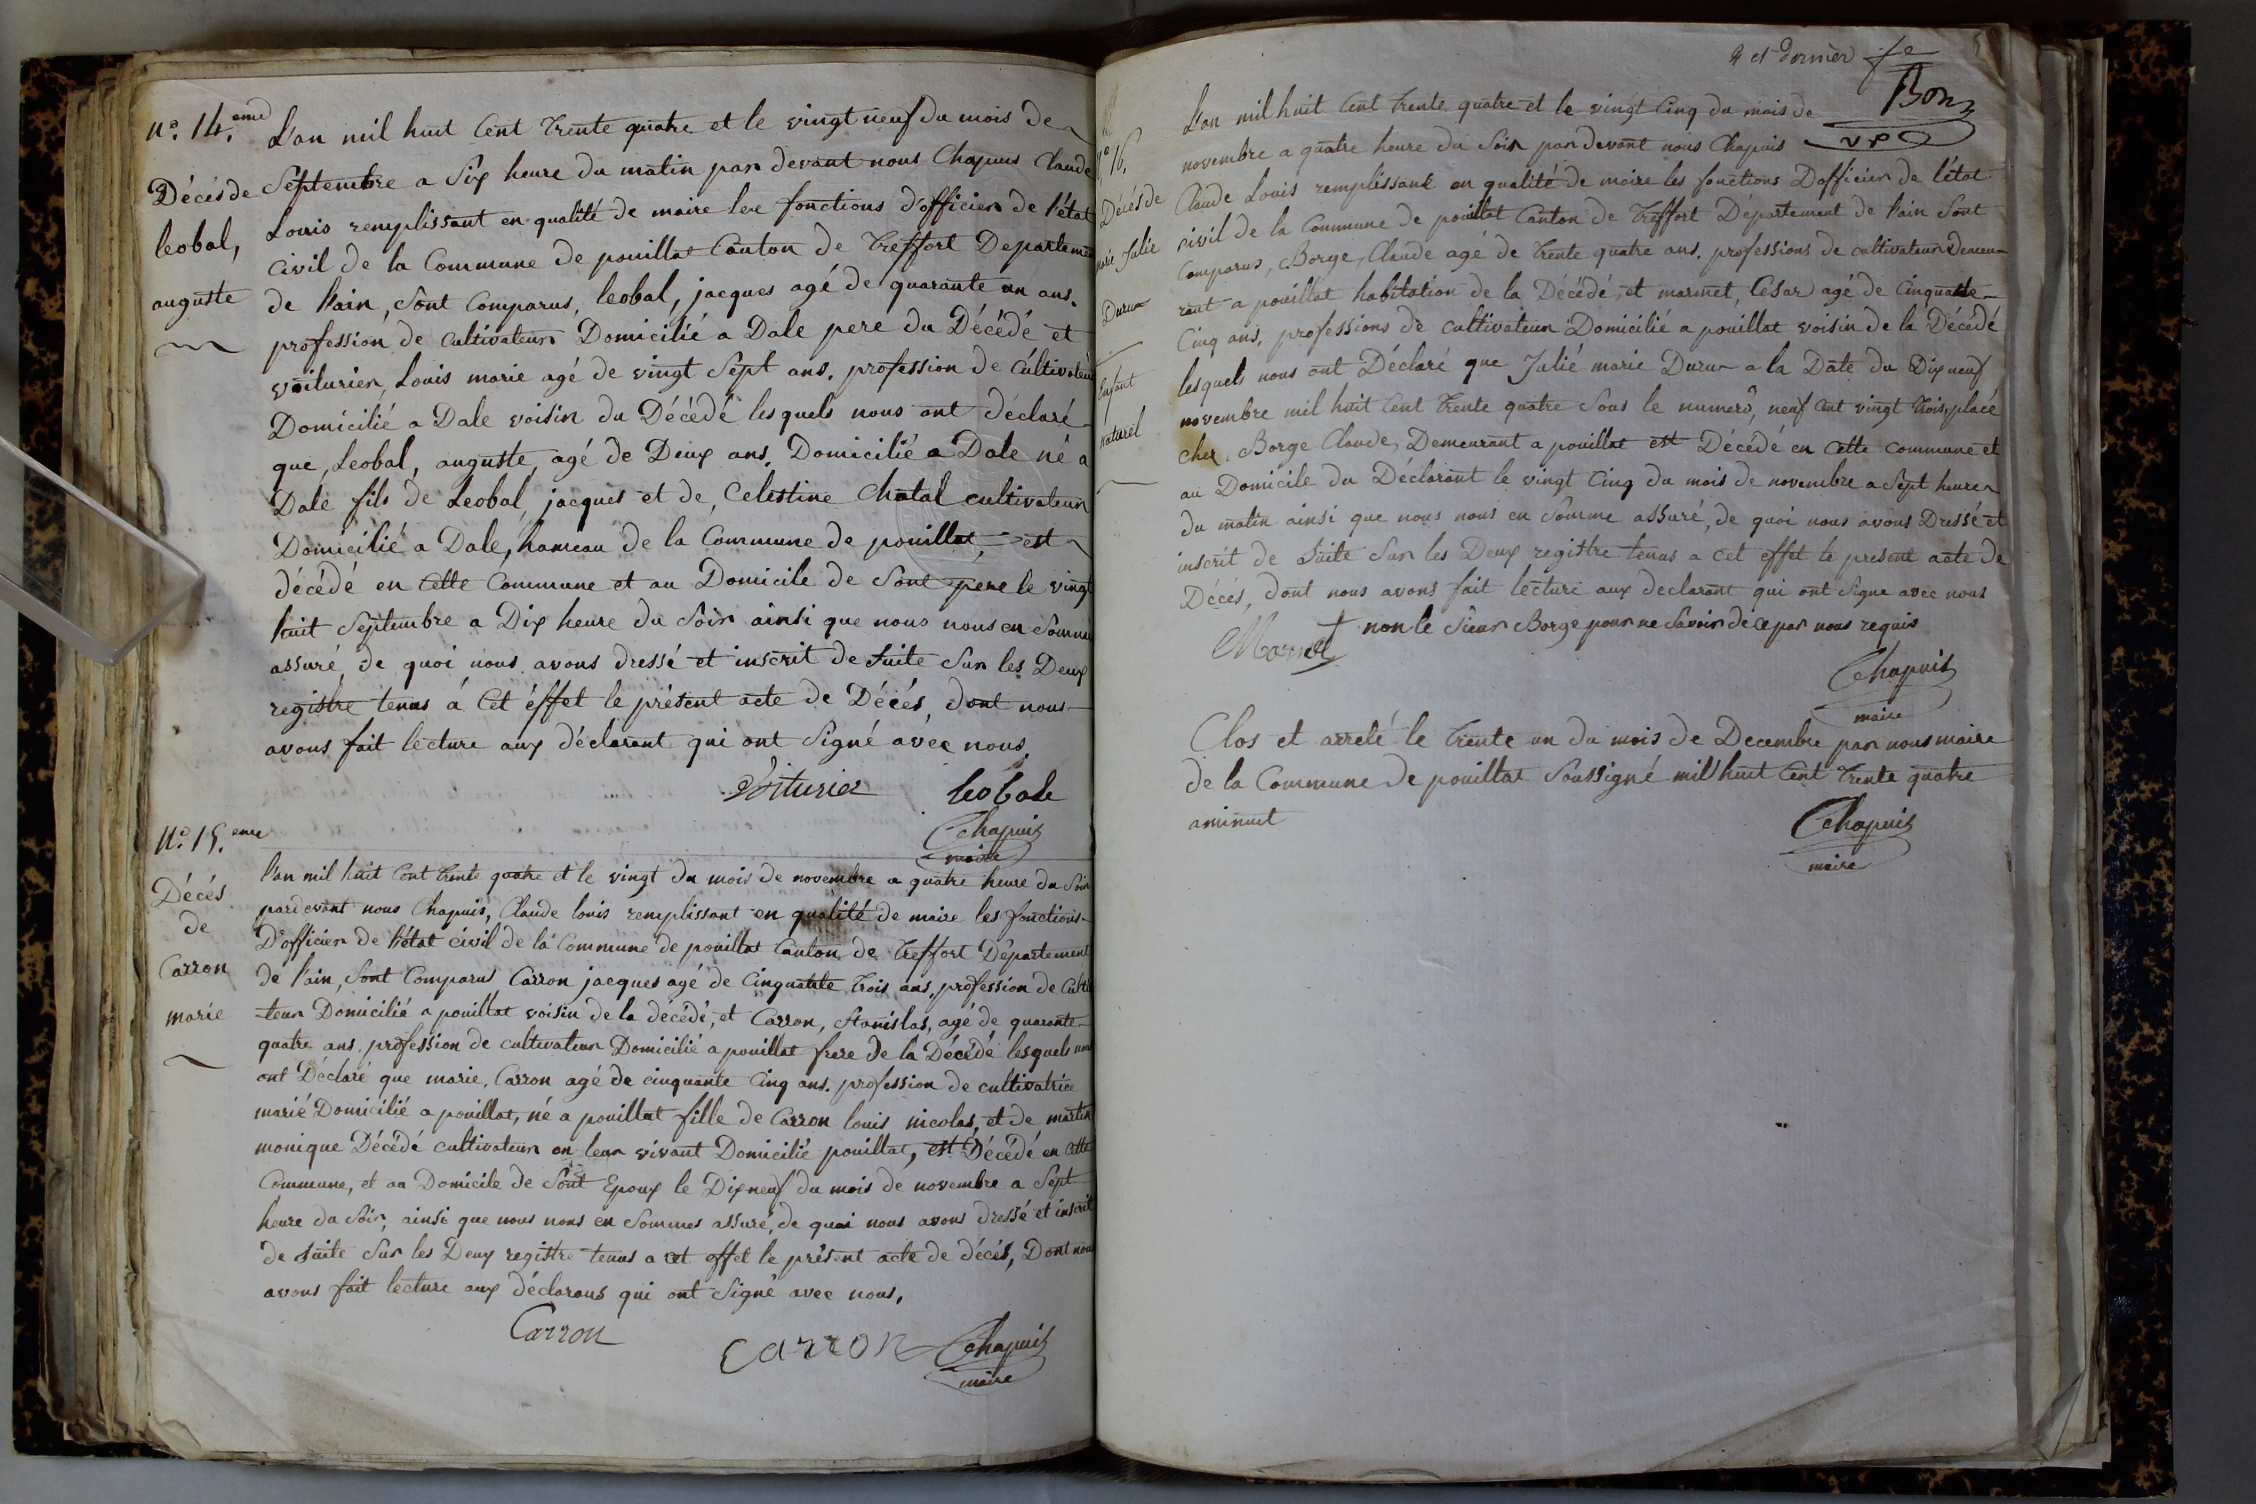 n.º 14.eme
Décés de
leobal,
auguste
L'an mil huit Cent trente quatre et le vingt neuf du mois de
Septembre a Six heure du matin par devant nous Chapuis Claude
Louis remplissant en qualité de maire les fonctions d'officier de l'état
Civil de la Commune de pouillat Canton de Treffort Departement
de l'ain, Sont Comparus, leobal, jacques agé de quarante un ans.
profession de Cultivateur Domicilié a Dale pere du Décédé et
voiturier, Louis marie agé de vingt Sept ans. profession de Cultivateur
Domicilié a Dale voisin du Décédé lesquels nous ont déclaré
que, Leobal, auguste, agé de Deux ans, Domicilié a Dale né a
Dale fils de Leobal, jacques et de, Celestine Chatal cultivateur
Domicilié a Dale, hameau de la Commune de pouillat, est
décédé en Cette Commune et au Domicile de Sont père le vingt
huit Septembre a Dix heure du Soir ainsi que nous nous en Somme
assuré, de quoi nous avons dressé et inscrit de Suite Sur les Deux
registre tenus á Cet éffet le présent acte de Décés, dont nous
avons fait lecture aux déclarant qui ont Signé avec nous,
Voiturier leobale
Chapuis
maire
N.º 15.eme
Décés
de
Carron
marie
L'an mil huit Cent trente quatre et le vingt du mois de novembre a quatre heure du Soir
pardevant nous Chapuis, Claude louis remplissant en qualité de maire les fonctions
D'officier de l'état civil de la Commune de pouillat Canton de Treffort Département
de l'ain, Sont Comparus Carron jacques agé de Cinquante trois ans, profession de Culti
-teur Domicilié a pouillat voisin de la décédé, et Carron, Stanislas, agé de quarante
quatre ans. profession de cultivateur Domicilié a pouillat frere de la Décédé lesquels nous
ont Déclaré que marie, Carron agé de cinquante Cinq ans. profession de cultivatrice
marié Domicilié a pouillat, né a pouillat fille de Carron louis nicolas, et de martin
monique Décédé cultivateur en leur vivant Domicilié pouillat, est Décédé en Cette
Commune, et au Domicile de Sont Epoux le Dix neuf du mois de novembre a Sept
heure du Soir, ainsi que nous nous en Sommes assuré, de quoi nous avons dressé et inscrit
de Suite Sur les Deux registre tenus a cet effet le présent acte de décés, Dont nous
avons fait lecture aux déclarans qui ont Signé avec nous,
Carron
carron Chapuis
maire
4 et Dernier fe
Bon
V P
N.º 16.
Décés de
marie Julie
Durux
Enfant
naturel
L'an mil huit Cent trente quatre et le vingt Cinq du mois de
novembre a quatre heure du Soir par devant nous Chapuis
Claude Louis remplissant en qualité de maire les fonctions D'officier de l'état
civil de la Commune de pouillat Canton de Treffort Département de l'ain Sont
Comparus, Borge, Claude agé de trente quatre ans. professions de cultivateur Demeu-
rant a pouillat habitation de la Décédé, et marmet, Cesar agé de Cinquante
Cinq ans, professions de cultivateur Domicilié a pouillat voisin de la Décédé
lesquels nous ont Déclaré que Julié marie Durux a la Date du Dix neuf
novembre mil huit Cent trente quatre Sous le numerô, neuf Cent vingt trois, placé
chex, Borge Claude, Demeurant a pouillat est Décédé en Cette commune et
au Domicile du Déclarant le vingt Cinq du mois de novembre a Sept heure
du matin ainsi que nous nous en Somme assuré, de quoi nous avons Dressé et
inscrit de Suite Sur les Deux registre tenus a cet effet le present acte de
Décés, dont nous avons fait lecture aux declarant qui ont Signe avec nous
non le Sieur Borge pour ne Savoir de ce par nous requis
Marmet
Chapuis
maire
Clos et arreté le trente un du mois de Decembre par nous maire
de la Commune de pouillat Soussigné mil huit Cent trente quatre
a minuit
Chapuis
maire